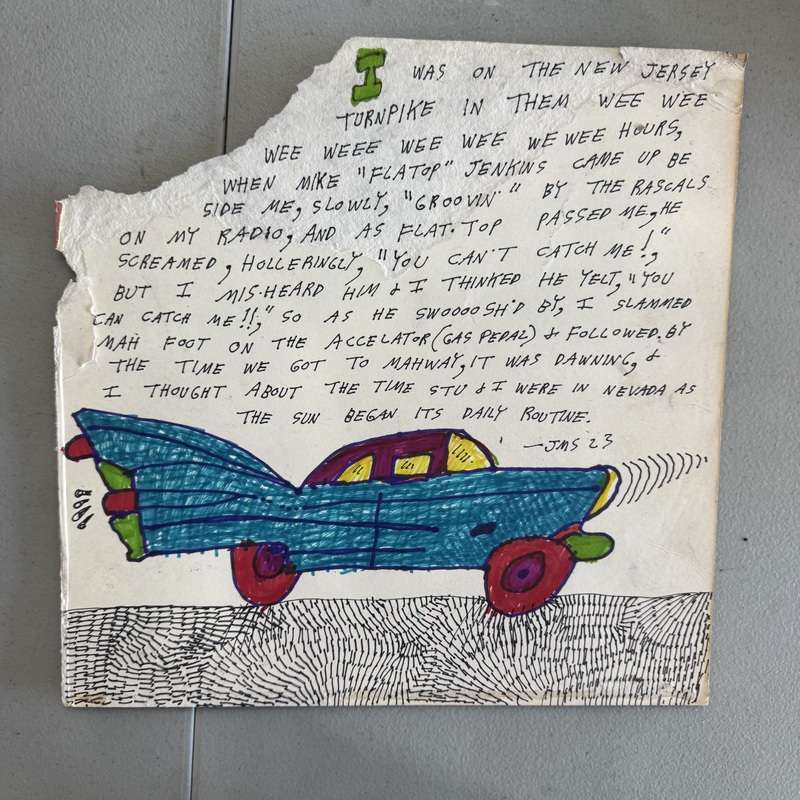 I WAS ON THE NEW JERSEY
TURNPIKE IN THEM WEE WEE
WEE WEEE WEE WEE WE WEE HOURS,
WHEN MIKE "FLATOP" JENKINS CAME UP BE
SIDE ME, SLOWLY, "GROOVIN'" BY THE RASCALS
ON MY RADIO, AND AS FLAT-TOP PASSED ME, HE
SCREAMED, HOLLERINGLY, "YOU CAN'T CATCH ME!,"
BUT I MIS-HEARD HIM & I THINKED HE YELT, "YOU
CAN CATCH ME!!," SO AS HE SWOOOOSH'D BY, I SLAMMED
MAH FOOT ON THE ACCELATOR (GAS PEDAL) & FOLLOWED. BY
THE TIME WE GOT TO MAHWAY, IT WAS DAWNING, &
I THOUGHT ABOUT THE TIME STU & I WERE IN NEVADA AS
THE SUN BEGAN ITS DAILY ROUTINE.
—JMS 23